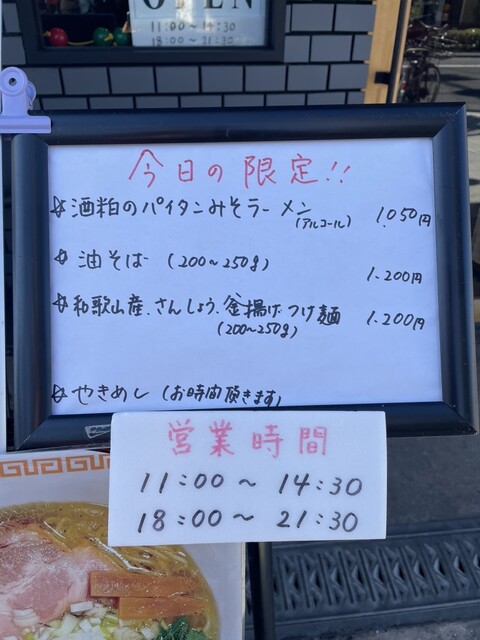 OPEN
11:00〜14:30
18:00〜21:30
今日の限定!!
☆酒粕のパイタンみそラーメン 1.050円
(アルコール)
☆油そば (200〜250g)
1.200円
☆和歌山産.さんしょう.釜揚げつけ麺 1.200円
(200〜250g)
☆やきめし (お時間頂きます)
営業時間
11:00〜14:30
18:00〜21:30